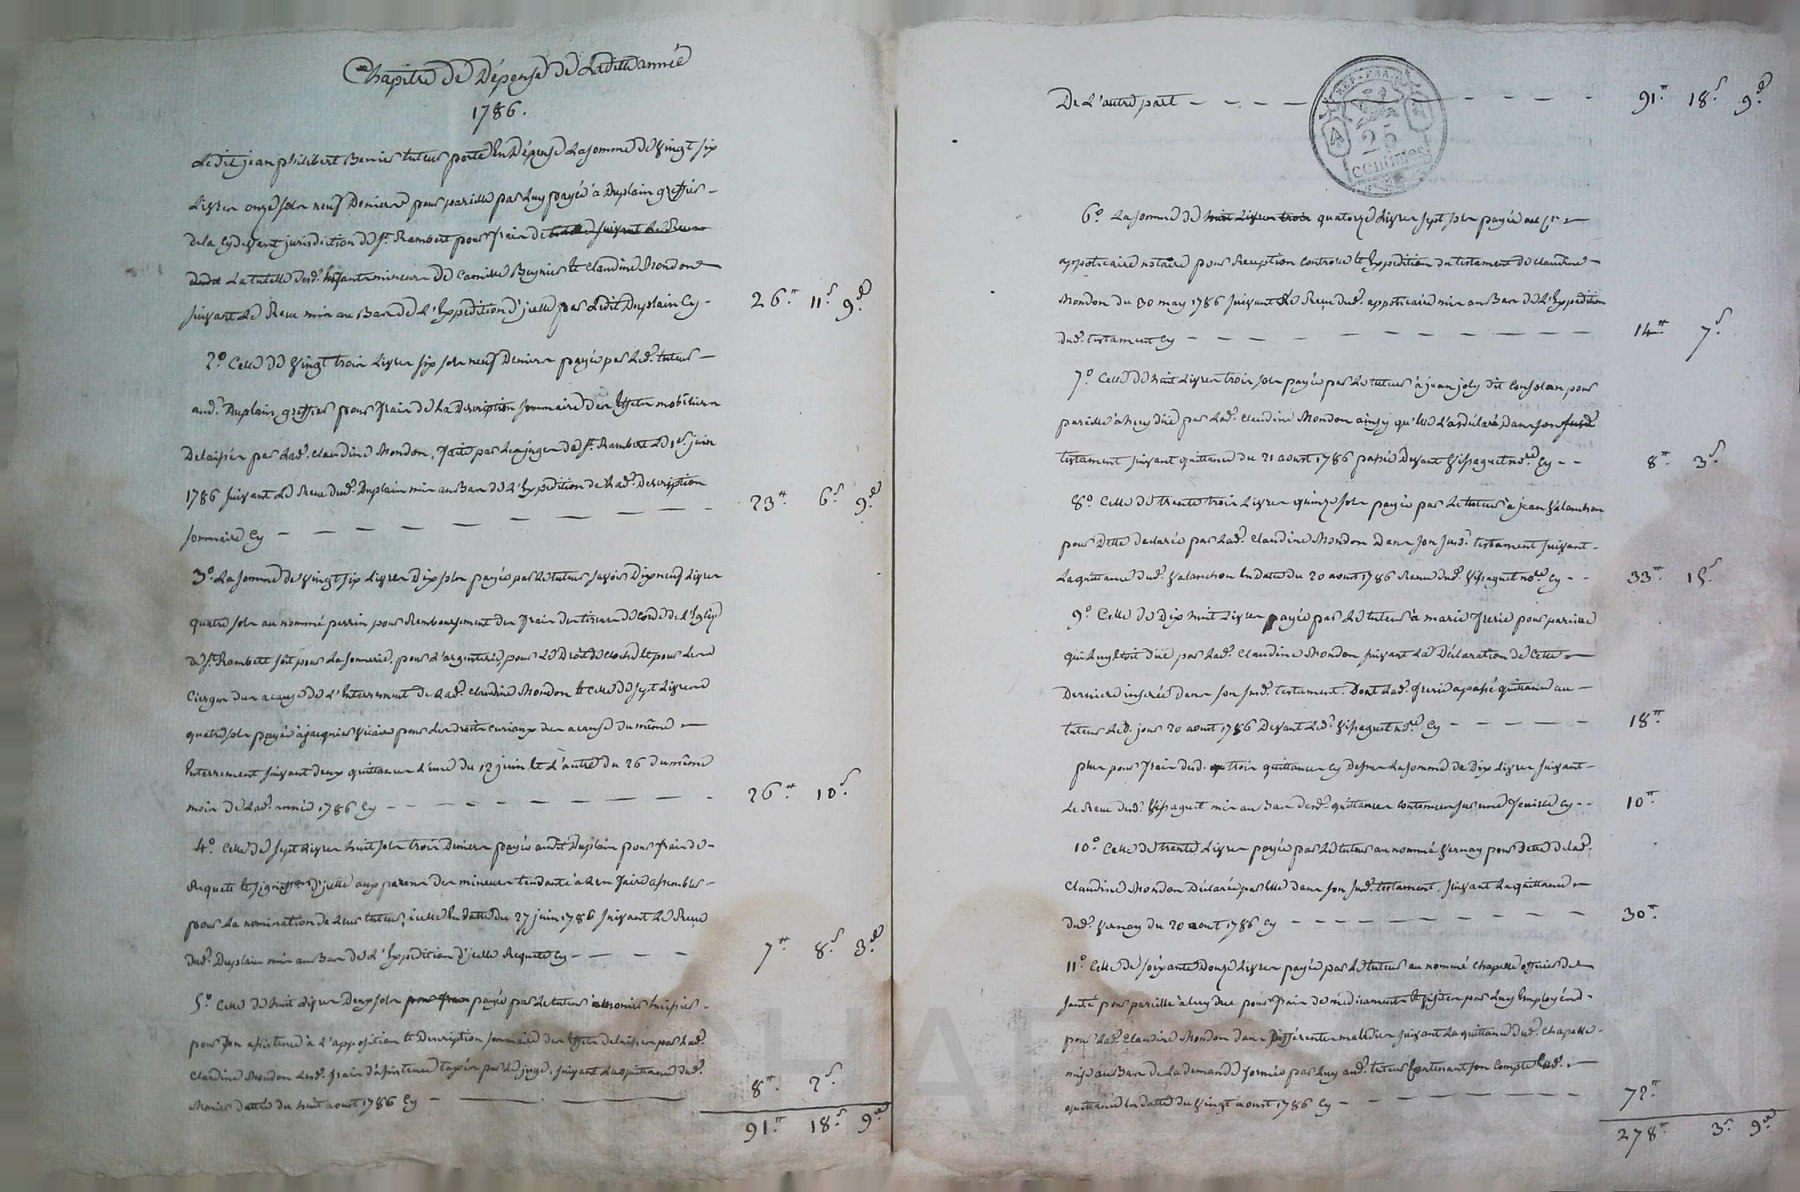 Chapitre de Dépense de Laditte année
1786.
Ledit jean philibert tuteur porte En Dépense La somme de Vingt six
Livres onze sols neuf Deniers pour pareille par Luy payée à Duplain greffier
de la Cydevant jurisdiction de St. Rambert pour frais de
La tutelle desd. Enfants mineurs de Camille et Claudine Mondon
suivant Le Reçu mis au Bas de L'Expedition d'jcelle par Ledit Duplain Cy - 26 ₶ 11 s 9 d
2° Celle de Vingt trois Livres six sols neuf Deniers payée par Led. tuteur
aud. Duplain greffier pour frais de La Description sommaire des Effets mobiliers
Delaissés par Lad. Claudine Mondon, faite par Les juges de St. Rambert Le 1er juin
1786 suivant Le Reçu dud. Duplain mis au Bas de L'Expedition de Lad. Description
sommaire Cy - 23 ₶ 6 s 9 d
3° La somme de Vingt six Livres Dix sols payée par Le tuteur savoir Dixneuf Livres
quatre sols au nommé perrin pour Remboursement des frais de L'Eglise
de St. Rambert soit pour La sonnerie, pour L'argenterie, pour Le Droit de et pour Les
Cierges dus a cause de L'Enterrement de Lad. Claudine Mondon et Celle de sept Livres
quatre sols payée à jacquier Vicaire pour Les droits curiaux dus a cause du même
Enterrement suivant deux quittances L'une du 12 juin et L'autre du 26 du même
mois de Lad. année 1786 Cy - 26 ₶ 10 s
4° Celle de sept Livres huit sols trois Deniers payée audit Duplain pour frais de
Requete et d'jcelle aux parens des mineurs tendante à Les faire assembler
pour La nomination de Leur tuteur, icelle En datte du 27 juin 1786 suivant Le Reçu
dud. Duplain mis au Bas de L'Expedition d'jcelle Requete Cy - 7 ₶ 8 s 3 d
5° Celle de huit Livres Deux sols payée par Le tuteur à huissier
pour son assistence à L'apposition et Description sommaire des Effets delaissés par Lad.
Claudine Mondon Lesd. frais d'assistence taxés par Le juge, suivant La quittance dud.
datté du huit aout 1786 Cy - 8 ₶ 2 s
91 ₶ 18 s 9 d
De L'autre part - 91 ₶ 18 s 9 d
REP. FRA.
25
centimes
6° La somme de huit Livres trois quatorze Livres sept sols payée au Sr
appoticaire notaire pour Reception controle et Expedition du testament de Claudine
Mondon du 30 may 1786 suivant Le Reçu dud. appoticaire mis au Bas de L'Expedition
dud. testament Cy - 14 ₶ 7 s
7° Celle de huit Livres trois sols payée par Le tuteur à jean joly dit pour
pareille à Luy düe par Lad. Claudine Mondon ainsy qu'Elle L'a déclaré dans son
testament suivant quittance du 21 aoust 1786 passée Devant nore Cy - 8 ₶ 3 s
8° Celle de trente trois Livres quinze sols payée par Le tuteur à jean Valanchon
pour Dette declarée par Lad. Claudine Mondon Dans son susd. testament suivant
La quittance dud. Valanchon En datte du 20 aout 1786 Reçue dud. nore Cy - 33 ₶ 15 s
9° Celle de Dix huit Livres payée par Le tuteur à marie pour pareille
qui Luy Etoit düe par Lad. Claudine Mondon suivant La Déclaration de Cette
Derniere inserée dans son susd. testament. Dont Lad. a passé quittance au
tuteur Led. jour 20 aout 1786 Devant Led. nore Cy - 18 ₶
plus pour frais desd. trois quittances Cy Dessus La somme de Dix Livres suivant
Le Reçu dud. mis au Bas desd. quittances contenues sur une feuille Cy - 10 ₶
10° Celle de trente Livres payée par Le tuteur au nommé Vernay pour dette de Lad.
Claudine Mondon Déclarée par Elle dans son susd. testament, suivant La quittance
dud. Vernay du 20 aout 1786 Cy - 30 ₶
11° Celle de soixante Douze Livres payée par Le tuteur au nommé Chapelle officier de
santé pour pareille à Luy düe pour frais de médicaments et Visites par Luy Employés
pour Lad. Claudine Mondon dans Différentes maladies suivant La quittance dud. Chapelle
mise au Bas de La demande formée par Luy aud. tuteur Contenant son Compte Lad.
quittance En datte du Vingt aoust 1786 Cy - 72 ₶
278 ₶ 3 s 9 d